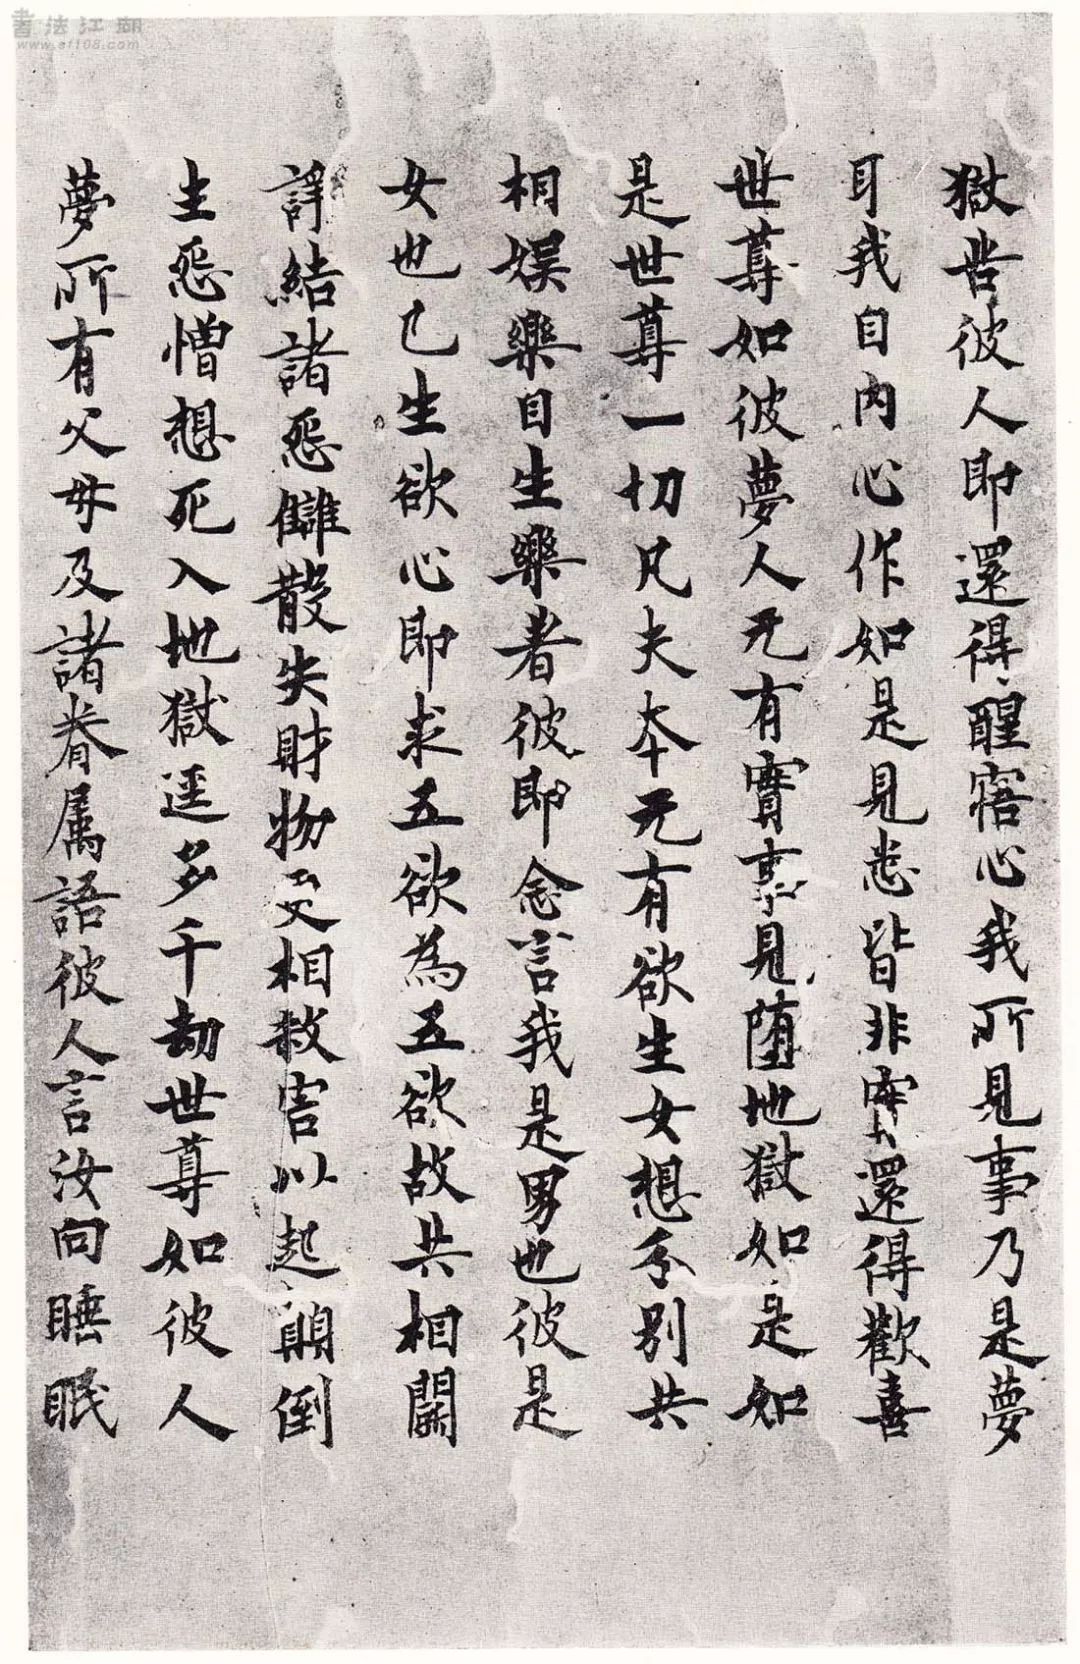 書法江湖
www.sf108.com
獄苦彼人即還得醒寤心我所見事乃是夢
耳我自内心作如是見悉皆非實還得歡喜
世尊如彼夢人无有實事見墮地獄如是如
是世尊一切凡夫本无有欲生女想分別共
相娛樂自生樂者彼即念言我是男也彼是
女也已生欲心即求五欲為五欲故共相鬭
諍結諸怨讎散失財物更相殺害以起顛倒
生怨憎想死入地獄逕多千劫世尊如彼人
夢所有父母及諸眷属語彼人言汝向睡眠